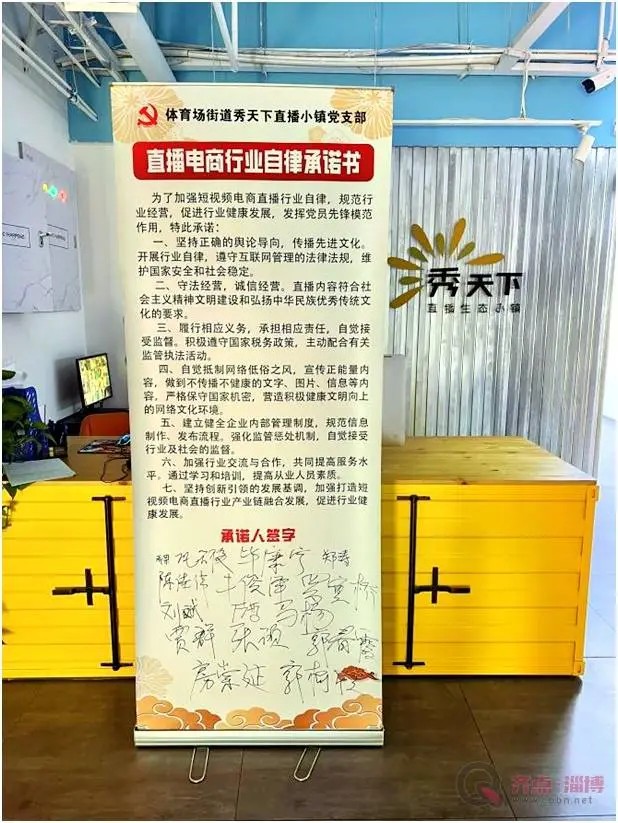 体育场街道秀天下直播小镇党支部
直播电商行业自律承诺书
为了加强短视频电商直播行业自律，规范行
业经营，促进行业健康发展，发挥党员先锋模范
作用，特此承诺：
一、坚持正确的舆论导向，传播先进文化。
开展行业自律，遵守互联网管理的法律法规，维
护国家安全和社会稳定。
二、守法经营，诚信经营。直播内容符合社
会主义精神文明建设和弘扬中华民族优秀传统文
化的要求。
三、履行相应义务，承担相应责任，自觉接
受监督。积极遵守国家税务政策，主动配合有关
监管执法活动。
四、自觉抵制网络低俗之风，宣传正能量内
容，做到不传播不健康的文字、图片、信息等内
容，严格保守国家机密，营造积极健康文明向上
的网络文化环境。
五、建立健全企业内部管理制度，规范信息
制作、发布流程。强化监管惩处机制，自觉接受
行业及社会的监督。
六、加强行业交流与合作，共同提高服务水
平。通过学习和培训，提高从业人员素质。
七、坚持创新引领的发展基调，加强打造短
视频电商直播行业产业链融合发展，促进行业健
康发展。
承诺人签字
刘斌 马杨
贾群 张硕
房崇延
秀天下
直播生态小镇